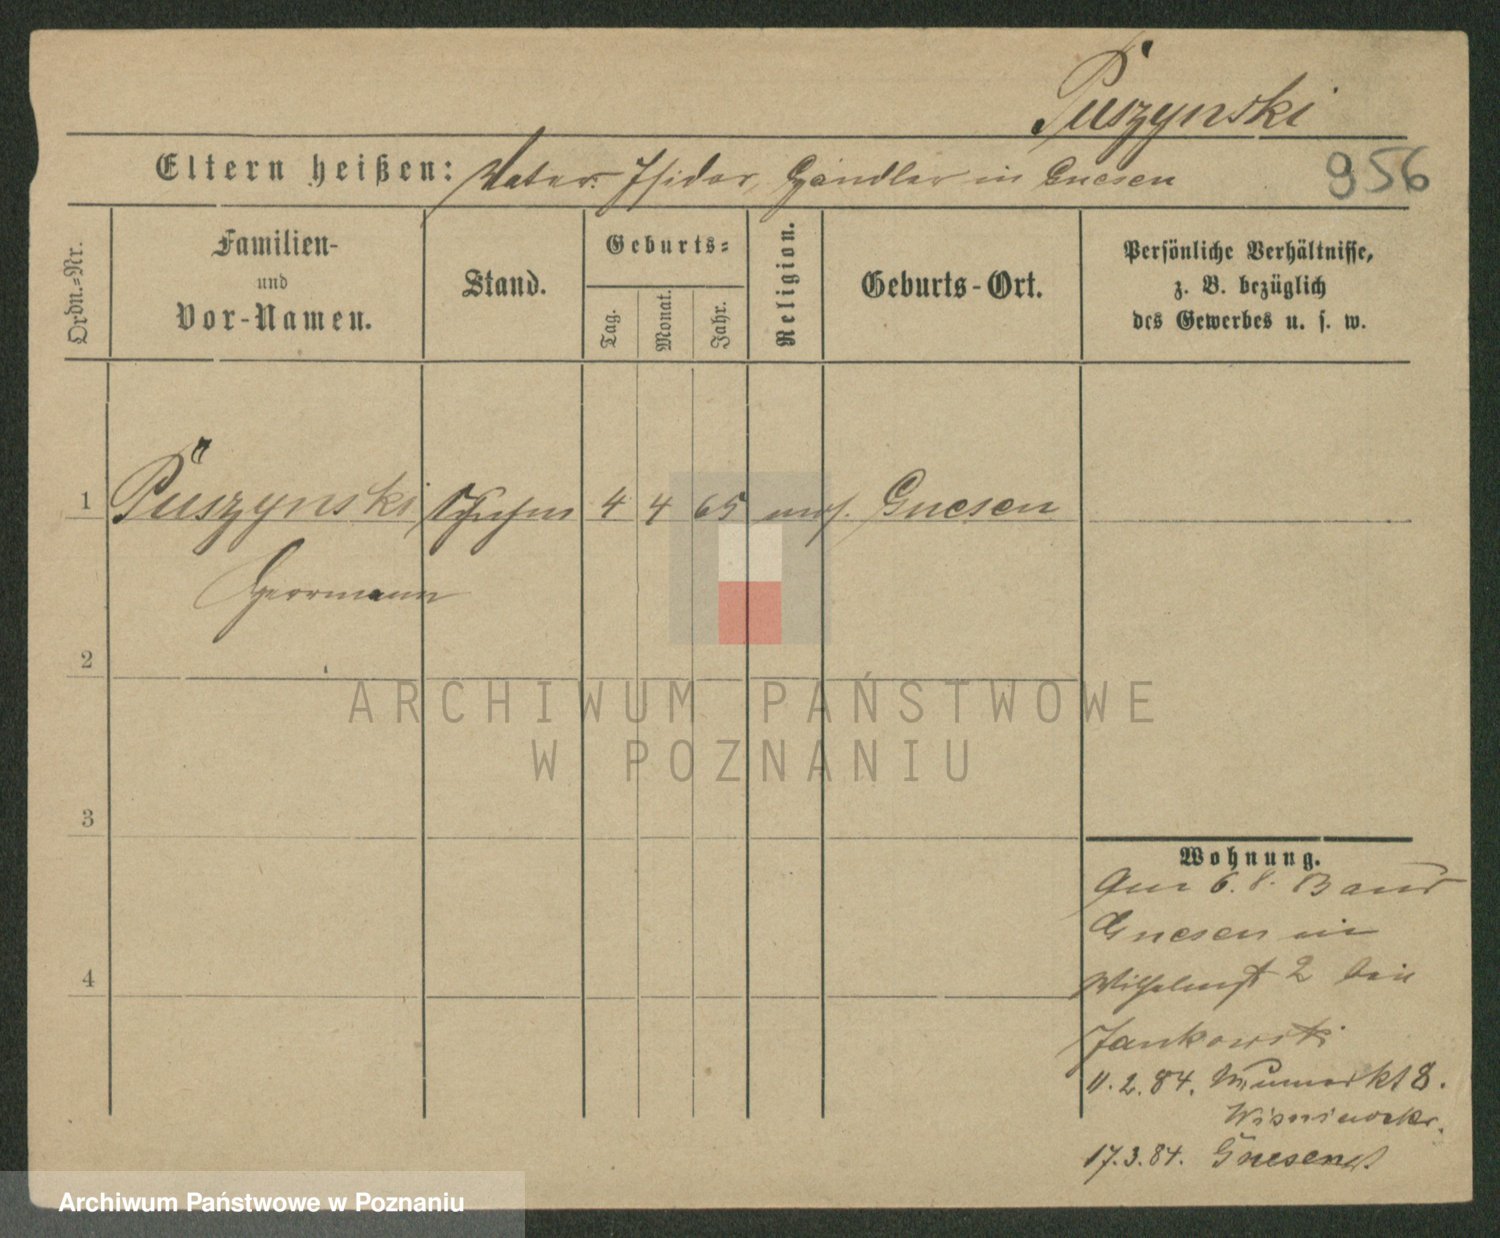 Puszynski
Eltern heißen: Vater: Isidor, Händler in Gnesen 956
Ordn.=Nr.
Familien-
und
Vor-Namen.
Stand.
Geburts=
Tag.
Monat.
Jahr.
Religion.
Geburts-Ort.
Persönliche Verhältnisse,
z. B. bezüglich
des Gewerbes u. s. w.
1 Puszynski 4 4 65 mos. Gnesen
Herrmann
2
ARCHIWUM PAŃSTWOWE
W POZNANIU
3
Wohnung.
Am 6. 8. 83 aus
Gnesen in
Wilhelmst 2 bei
4
Jankowski
11. 2. 84. Neumarkt 8.
17. 3. 84. Gnesen
Archiwum Państwowe w Poznaniu